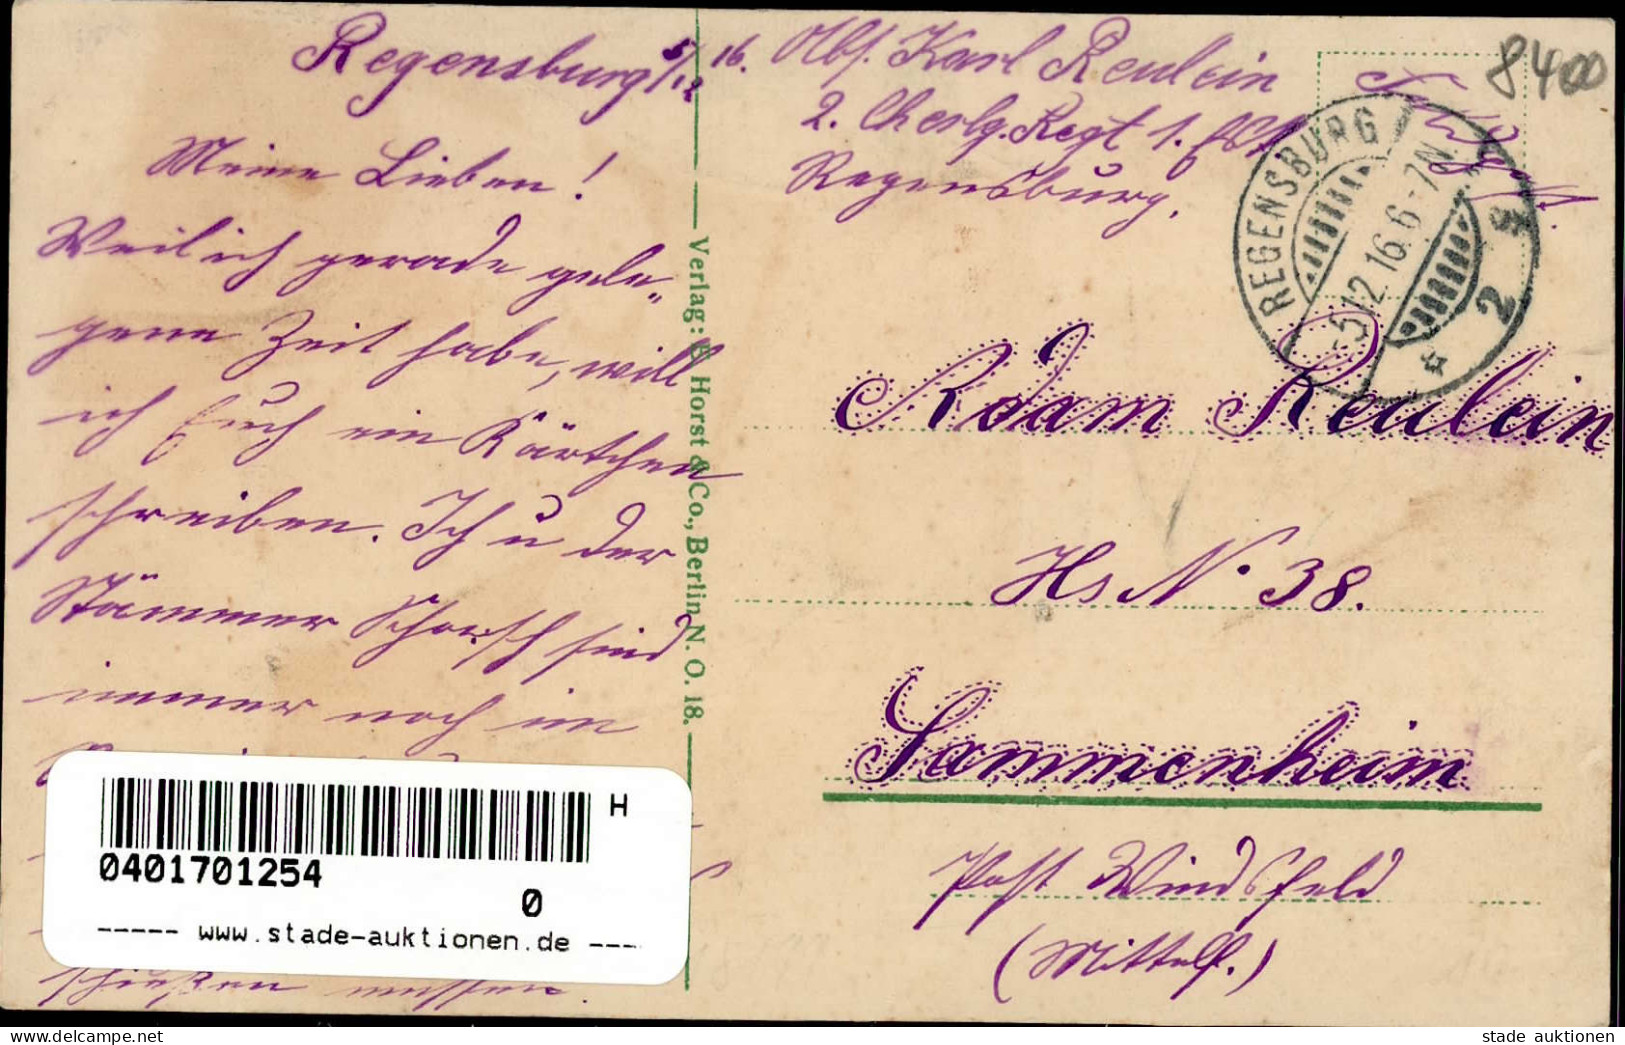 Regensburg 5/12 16.
Meine Lieben!
Weil ich gerade gele-
gene Zeit habe, will
ich Euch ein Kärtchen
schreiben. Ich u der
Stammer Schorsch sind
immer noch im
schießen müssen.
Verlag: E Horst & Co., Berlin N. O. 18.
Karl Reulein
2. Chevlg. Regt 1.
Regensburg.
8400
REGENSBURG 2
-5.12.16.6-7N.
Adam Reulein
Hs N. 38.
Sammenheim
Post Windsfeld
(Mittelf.)
H
0401701254
0
----- www.stade-auktionen.de ----
stade auktionen
https://www.delcampe.net